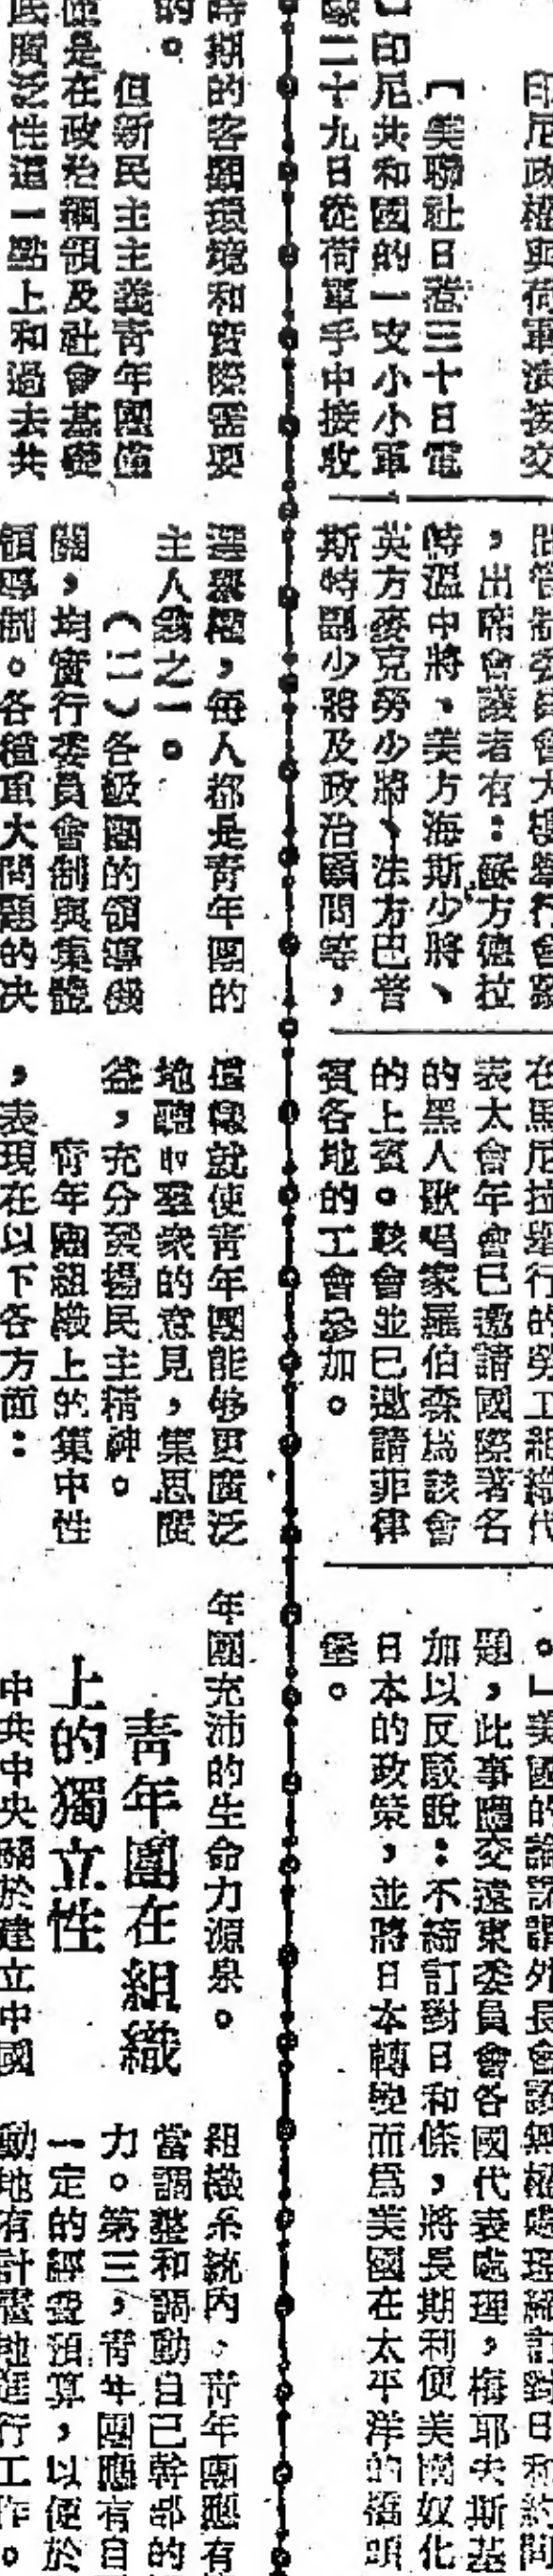 印尼政權與荷軍演接交
【美聯社日惹三十日電
】印尼共和國的一支小小軍
隊二十九日從荷軍手中接收
管制委員會大樓舉行會議
，出席會議者有：蘇方德拉
特溫中將、美方海斯少將、
英方麥克勞少將、法方巴普
斯特副少將及政治顧問等，
在馬尼拉舉行的勞工組織代
表大會年會已邀請國際著名
的黑人歌唱家羅伯森爲該會
的上賓。該會並已邀請菲律
賓各地的工會參加。
。」美國的論誤謂外長會議無權處理締訂對日和約問
題，此事應交遠東委員會各國代表處理，梅耶夫斯基
加以反駁說：不締訂對日和條，將長期利便美國奴化
日本的政策，並將日本轉變而爲美國在太平洋的橋頭
堡。
時期的客觀環境和實際需要
的。
但新民主主義青年團僅
僅是在政治綱領及社會基礎
民廣泛性這一點上和過去共
選舉權，每人都是青年團的
主人翁之一。
（二）各級團的領導機
關，均實行委員會制與集體
領導制。各種重大問題的决
這樣就使青年團能够更廣泛
地聽取羣衆的意見，集思廣
益，充分發揚民主精神。
青年團組織上的集中性
，表現在以下各方面：
年團充沛的生命力源泉。
青年團在組織
上的獨立性
中共中央關於建立中國
組織系統內，青年團應有
當調整和調動自己幹部的
力。第三，青年團應有自
一定的經費預算，以便於
動地有計畫地進行工作。